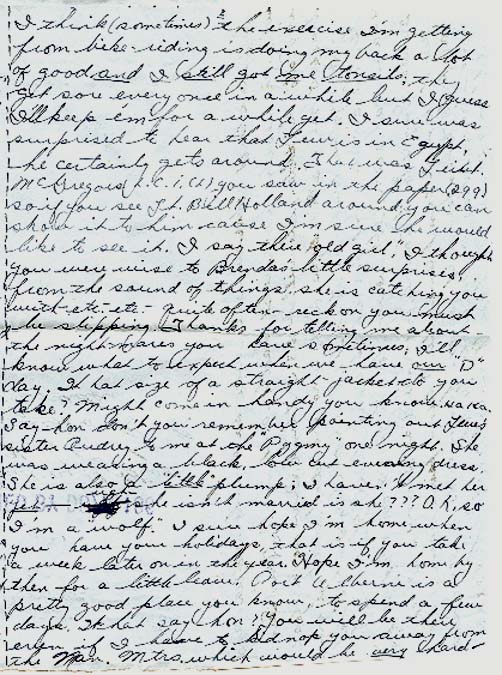 I think (sometimes) the exercise I'm getting
from bike-riding is doing my back a lot
of good and I still got me tonsils; they
get sore every once in a while but I guess
I'll keep 'em for a while yet. I sure was
surprised to hear that Lew is in Egypt,
he certainly gets around. That was Lieut.
McGregors L.C.I.(L) you saw in the paper (299)
so if you see Lt. Bill Holland around you can
show it to him cause I'm sure he would
like to see it. I say there "old girl", I thought
you were wise to Brenda's little surprises;
from the sound of things she is catching you
with-etc-etc- quite often - reckon you must
be slipping. Thanks for telling me about
the nightmares you have sometimes; I'll
know what to expect when we have our "D"
day. What size of a straight jacket do you
take? Might come in handy you know. Ha Ha.
Say-hon don't you remember pointing out Lew's
sister Audrey to me at the "Pygmy" one night. She
was wearing a black, low cut evening dress.
She is also a little plump; I haven't met her
yet - she isn't married is she??? O.K. so
I'm a "wolf." I sure hope I'm home when
you have your holidays, that is if you take
a week later on in the year. Hope I'm home by
then for a little leave. Port Alberni is a
pretty good place you know, to spend a few
days. What say hon? You will be there
even if I have to kidnap you away from
the Man. Mtrs. which would be very hard-